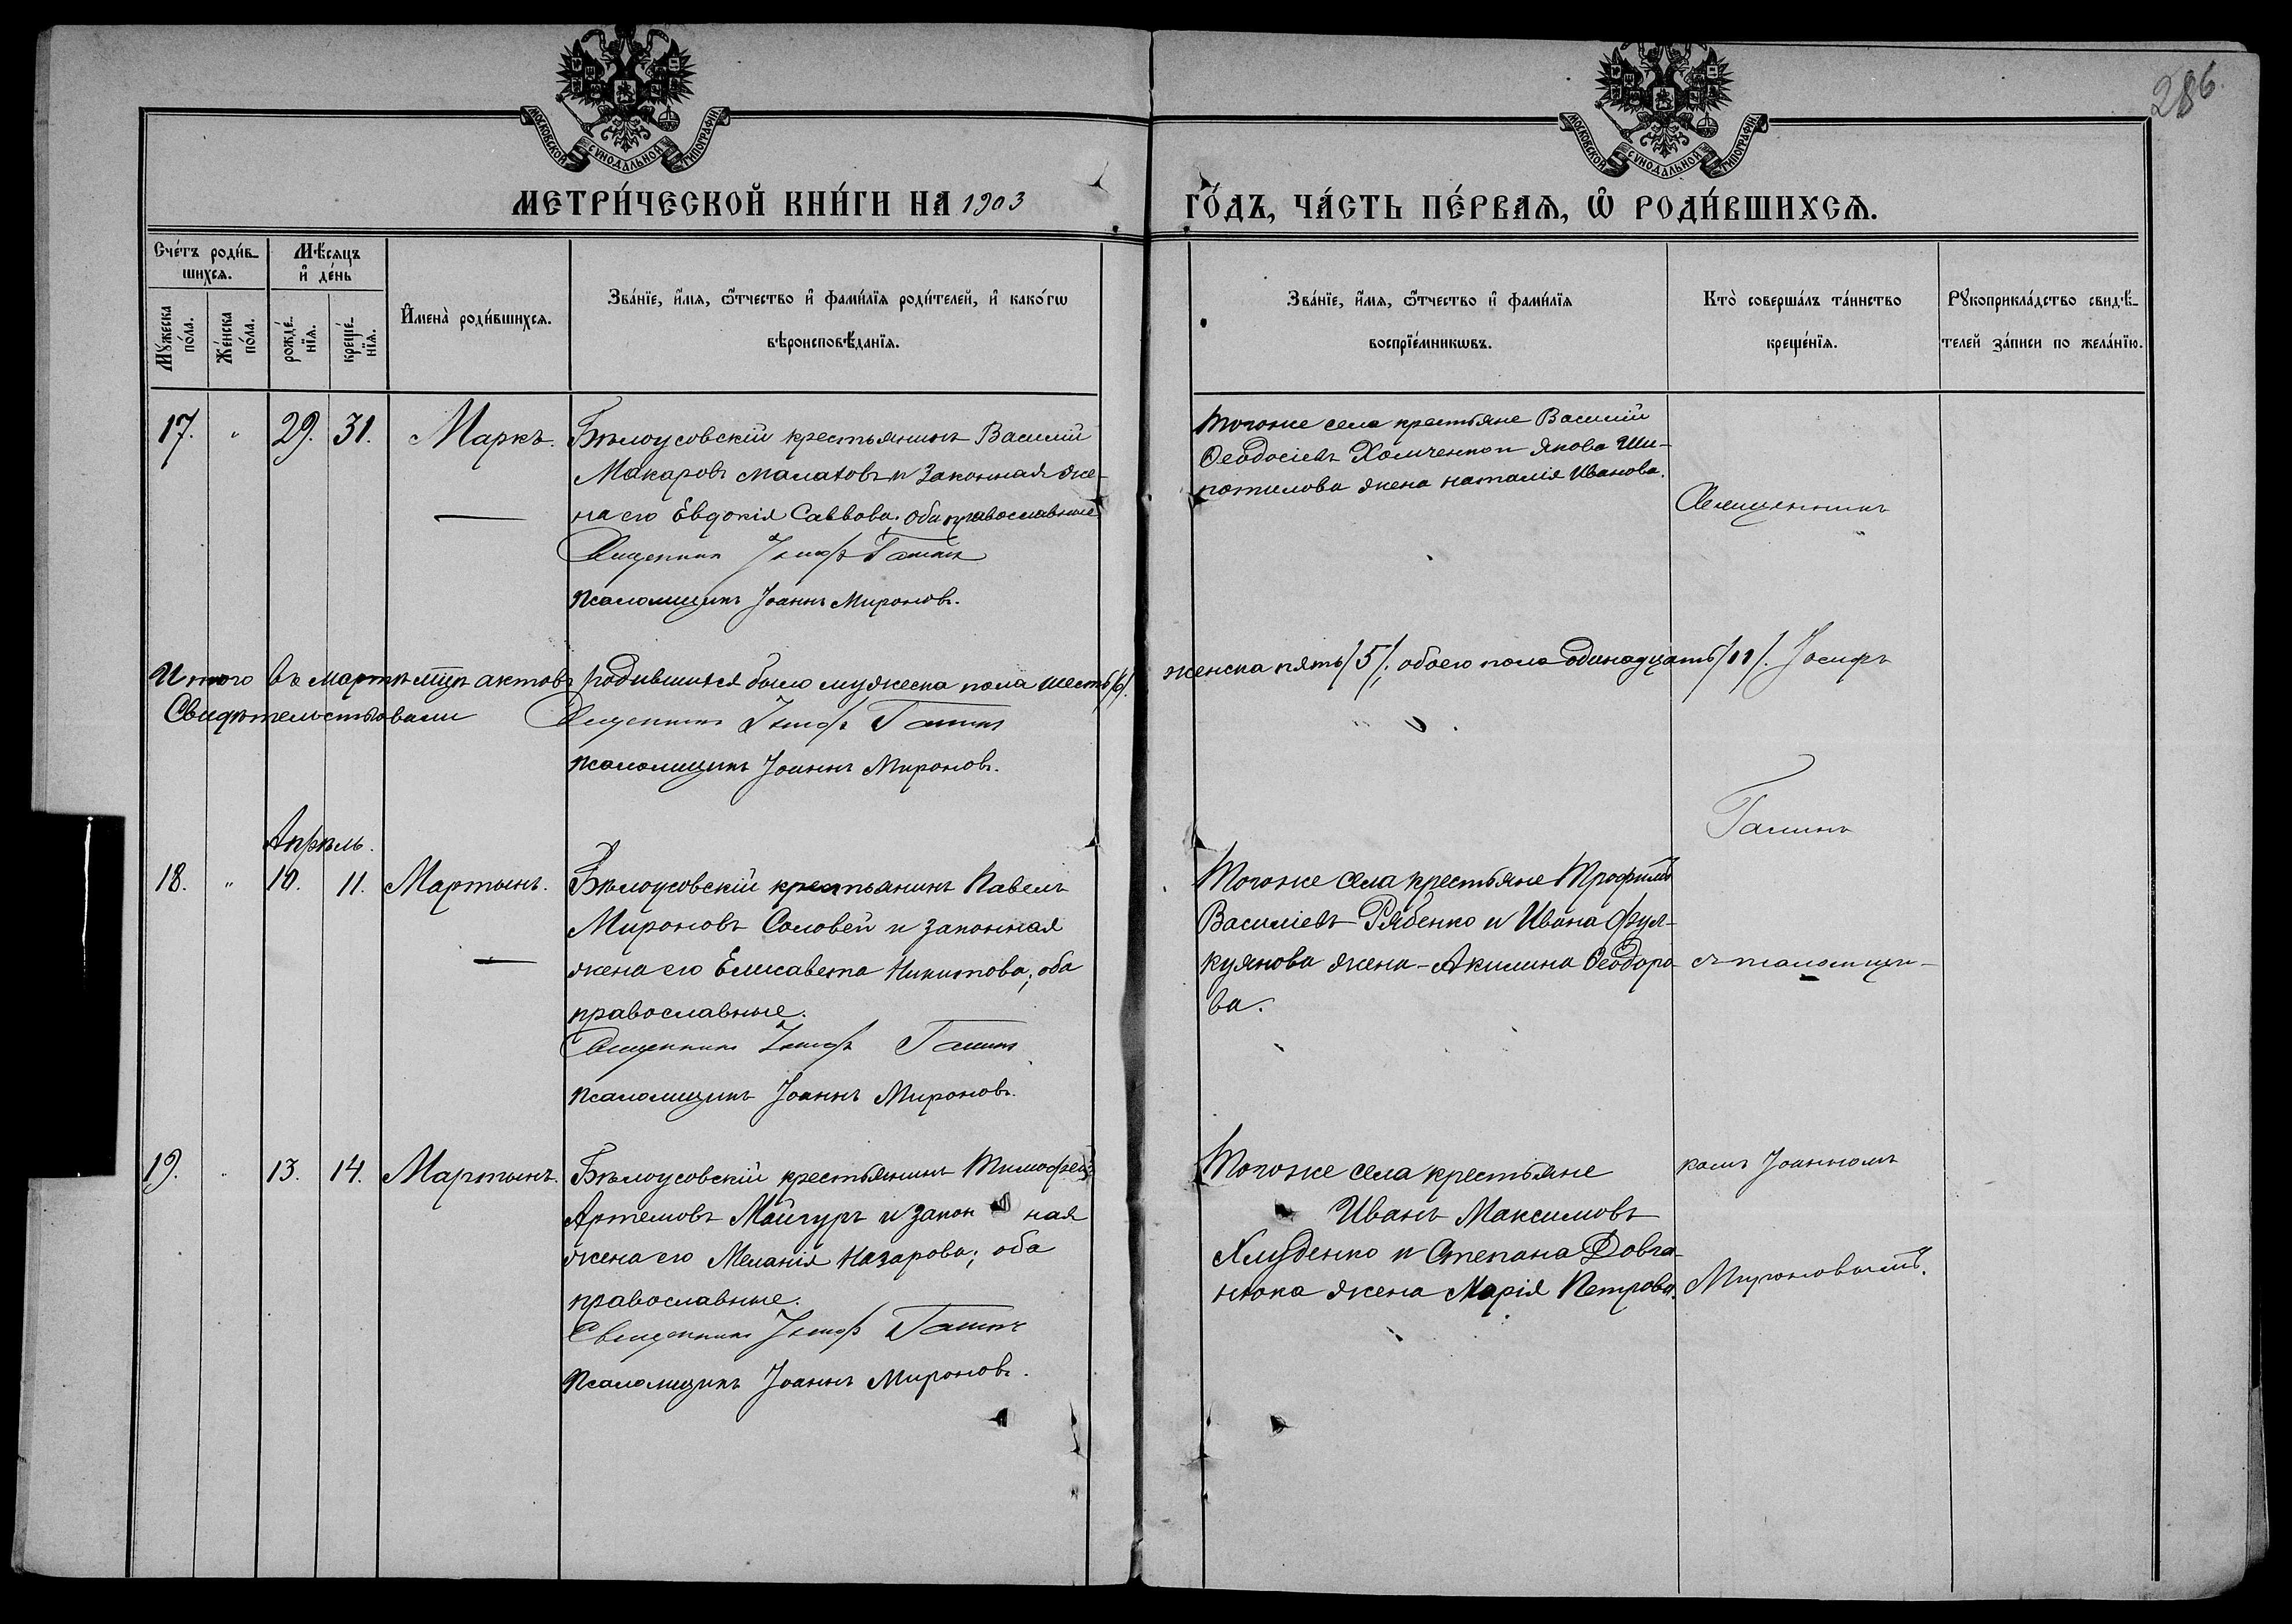 286.
МОСКОВСКОЙ СѴНОДАЛЬНОЙ ТИПОГРАФІИ
МОСКОВСКОЙ СѴНОДАЛЬНОЙ ТИПОГРАФІИ
МЕТРИ́ЧЕСКОЙ КНИ́ГИ НА 1903
ГО́ДЪ, ЧА́СТЬ ПЕ́РВАѦ, Ѡ҆ РОДИ́ВШИХСѦ.
Сче́тъ роди́в-
шихсѧ.
Мꙋ́жеска по́ла.
Же́нска по́ла.
Мѣ́сяцъ
и҆ де́нь
рожде́-
нїѧ.
креще́-
нїѧ.
И҆мена̀ роди́вшихсѧ.
Зва́нїе, и҆́мѧ, ѻ҆́тчество и҆ фами́лїѧ роди́телей, и҆ како́гѡ
вѣроисповѣ́данїѧ.
Зва́нїе, и҆́мѧ, ѻ҆́тчество и҆ фами́лїѧ
воспрїе́мникѡвъ.
Кто̀ соверша́лъ та́инство
креще́нїѧ.
Рꙋкоприкла́дство свидѣ́-
телей за́писи по жела́нїю.
17. " 29. 31. Маркъ.
Бѣлоусовскій крестьянинъ Василій
Макаровъ Малаховъ и законная же-
на его Евдокія Саввова. оба православные
Священникъ Іосифъ Гашинъ
Псаломщикъ Іоаннъ Мироновъ.
Тогоже села крестьяне Василій
Ѳеодосіевъ Хомченко и Якова Ши-
потилова жена Наталія Иванова.
Священникъ
Итого въ мартѣ мцѣ актовъ родившихся было мужеска пола шесть /6/.
женска пять /5/; обоего пола одинадцать /11/. Іосифъ
Свидѣтельствовали Священникъ Іосифъ Гашинъ
Псаломщикъ Іоаннъ Мироновъ.
Гашинъ
Апрѣль.
18. " 10. 11. Мартынъ.
Бѣлоусовскій крестьянинъ Павелъ
Мироновъ Соловей и законная
жена его Елисавета Никитова; оба
православные.
Священникъ Іосифъ Гашинъ
Псаломщикъ Іоаннъ Мироновъ.
Тогоже села крестьяне Трофимъ
Василіевъ Рябенко и Ивана Фул-
куянова жена - Акилина Ѳеодоро-
ва.
съ псаломщи-
19. " 13. 14. Мартынъ.
Бѣлоусовскій крестьянинъ Тимофей
Артемовъ Майгуръ и закон ная
жена его Меланія Назарова; оба
православные.
Священникъ Іосифъ Гашинъ
Псаломщикъ Іоаннъ Мироновъ.
Тогоже села крестьяне
Иванъ Максимовъ
Хлуденко и Степана Довга-
нюка жена Марія Петрова.
комъ Іоанномъ
Мироновымъ.